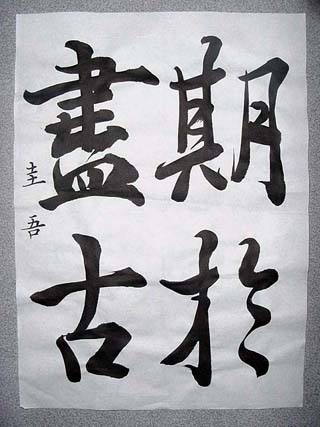 期於
盡古
圭吾